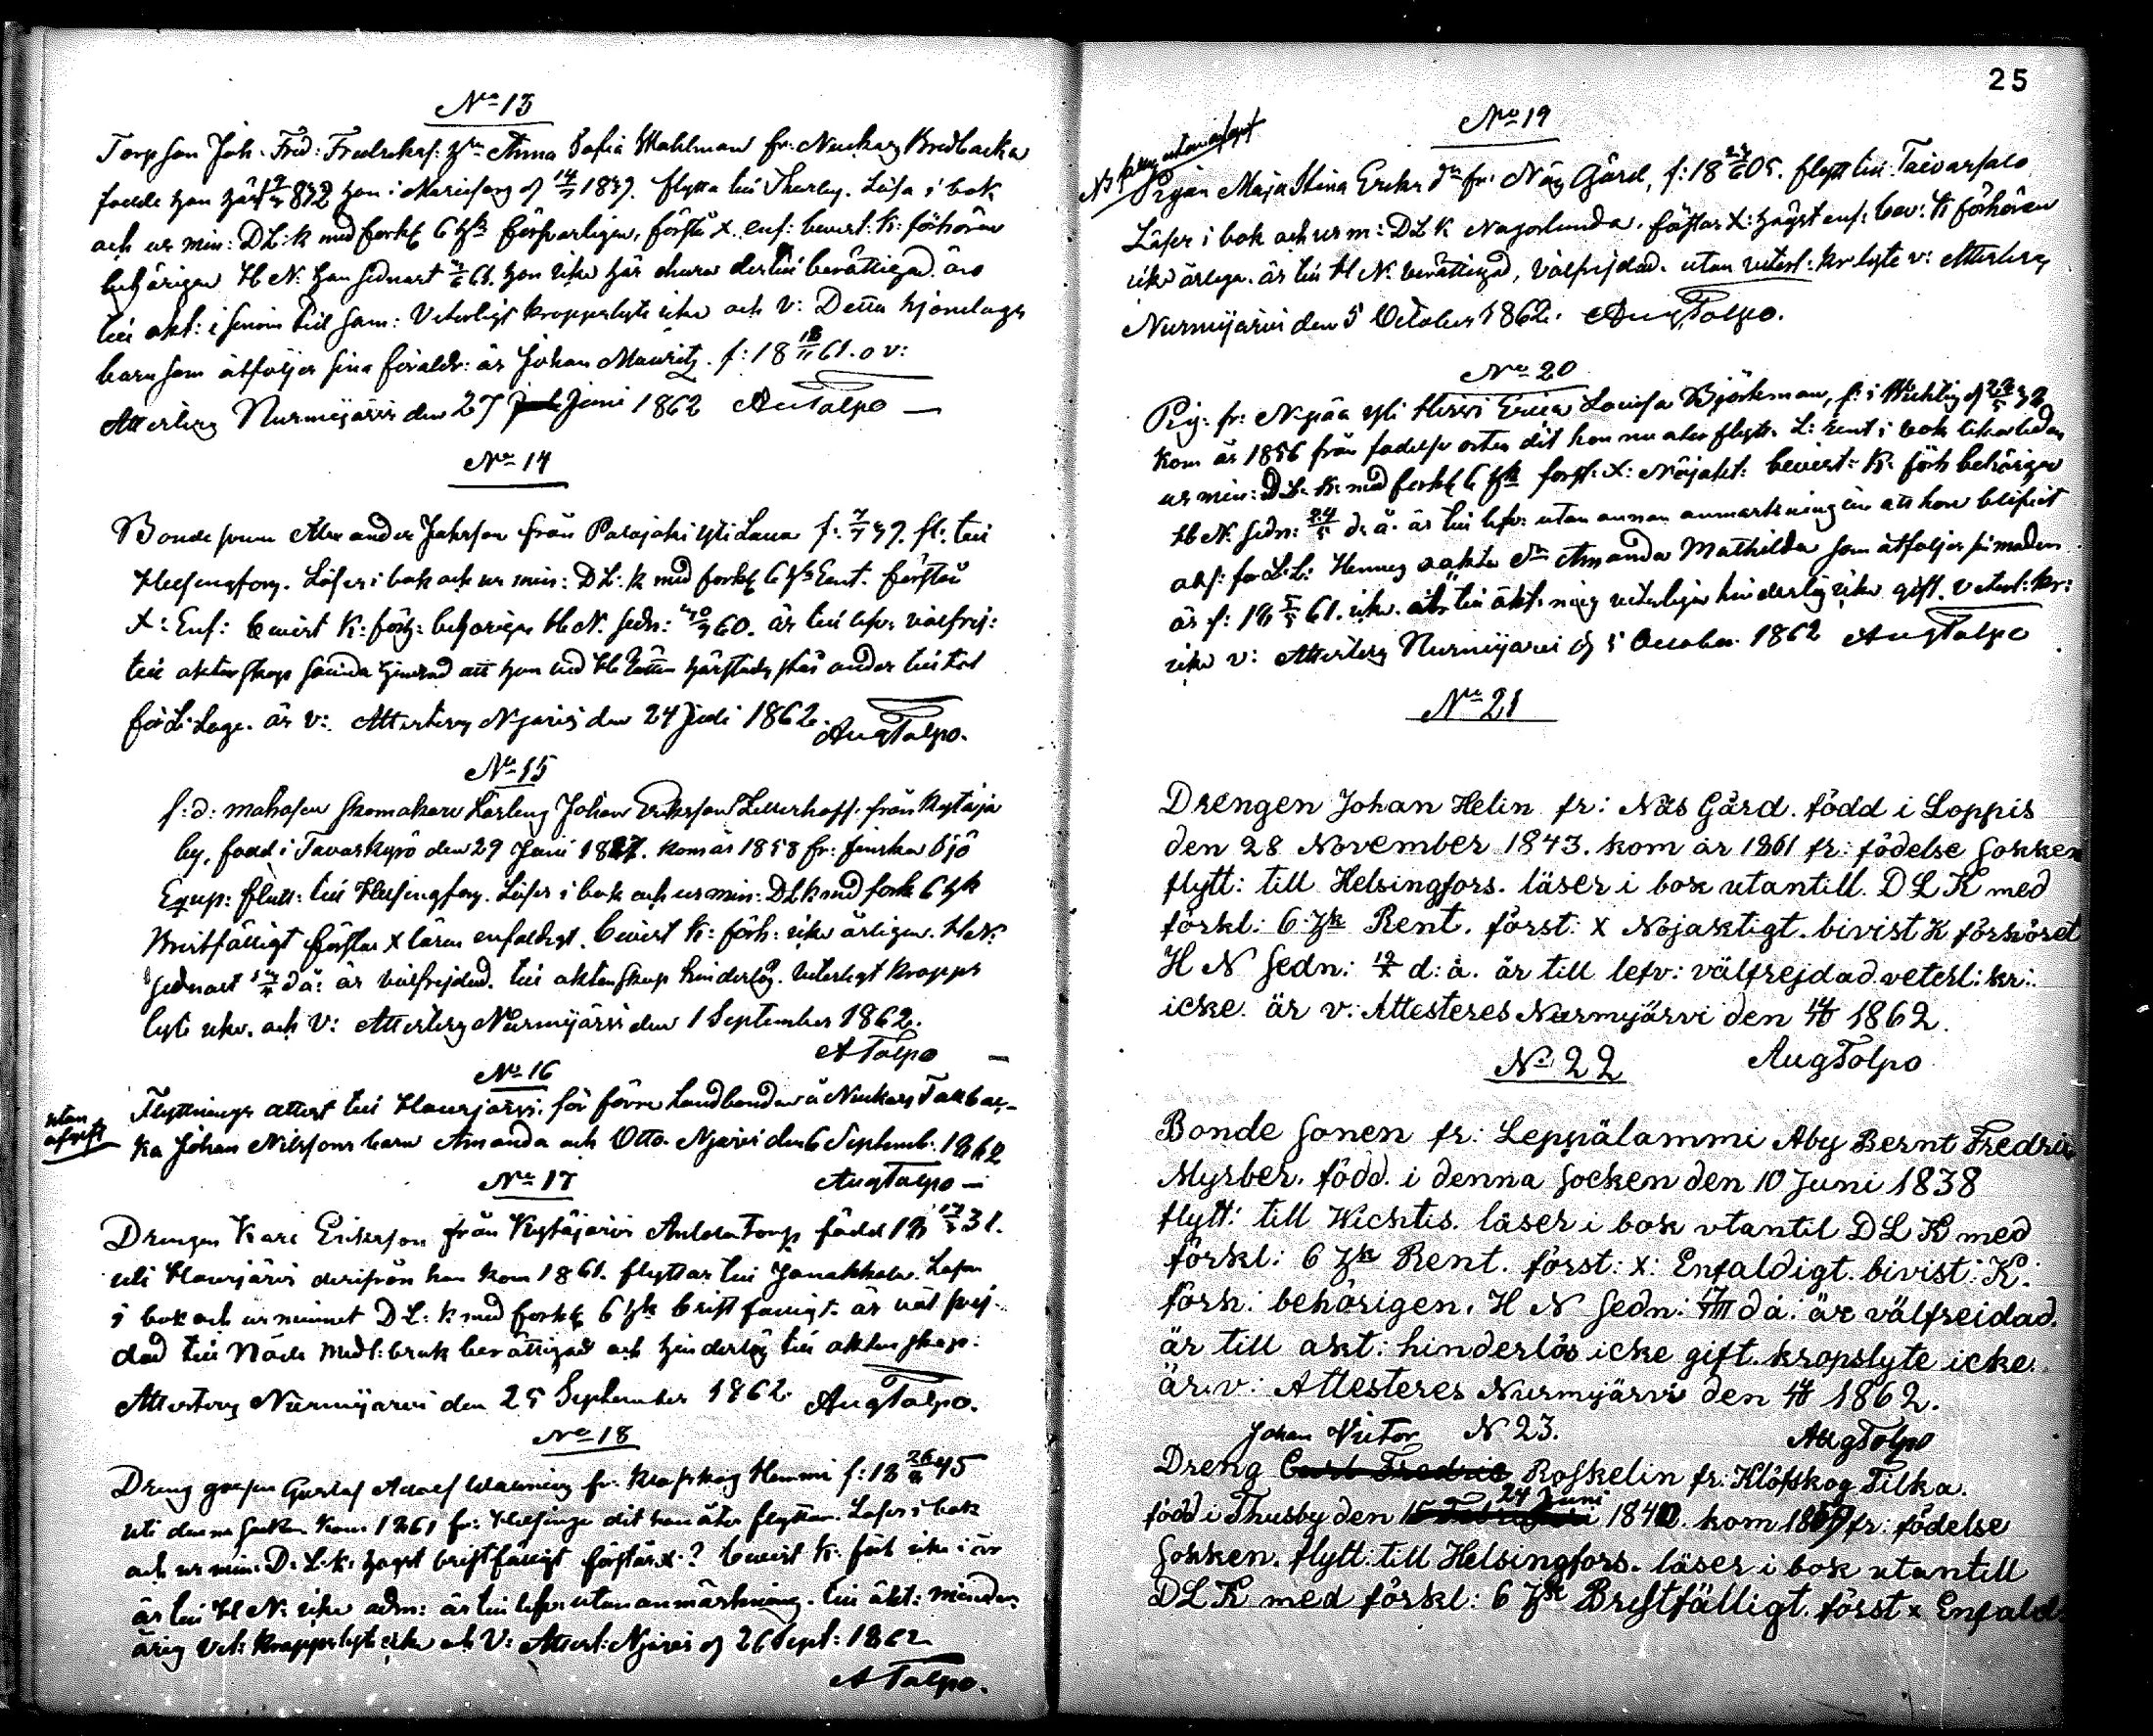 No 13
Torp son Joh. Fred: Fredriks: Hu Anna Sofia Wahlman fr: Nuckars Bredbacka
född han här 832 hon i Mariefors 14/7 1839. flytta till Thusby. Läsa i bok
och ur min: D L: K med förkl 6 H försvarligen, förstå X. enf: bevist: K: förhören
behörigen H N. han sednast 61. han icke här dertill berättigad. äro
till äkt: i senom tid sam: Veterligt kroppslyte icke och v: Detta hjonelags
barn som åtföljer sina föräldr: är Johan Mauritz. f: 18 18/11 61. o v:
Attesteres Nurmijärvi den 27 Juni 1862 AuTalpo
No 14
Bonde sonen Alexander Jakrson från Palajoki yli Lassa f: 7/7 39. fl: till
Helsingfors. Läser i bok och ur min: D L: K med förkl 6 H Rent. förstår
X: Enf: bevist K: förh: behörigen H N. sedn: 60. är till lefv: välfrej:
till äktenskap hindrad att han vid H Rätten härstädes står under tiltal
för L. Lage. är v: Attesteres Njärvi den 24 Juli 1862.
AugTalpo.
No 15
f: d: mahosen skomakare Lärling Johan Eriksson Lillerhoff. från Kytäjä
by, född i Tavaskyrö den 29 Juni 1827. kom år 1858 fr: finska Sjö
Equp: flytt: till Helsingfors. Läser i bok och ur min: D L K med förk 6 H
Bristfälligt förstår X läran enfaldigt. bevist K: förh: icke årligen. H N:
sednast d å: är välfrejdad. till äktenskap hinderlös. Veterligt kropps
lyte icke. och V: Attesteres Nurmijärvi den 1 September 1862.
A Talpo
No 16
utan
afgift
Flyttnings attest till Hausjärvi för förre Landbonden å Nuckars Tallbac-
ka Johan Nilssons barn Amanda och Otto. Njärvi den 6 Septemb: 1862
No 17
AugTalpo
Drengen Karl Eriksson från Kytäjärvi Anttila Torp född 18 31.
uti Hausjärvi derifrån han kom 1861. flyttar till Janakkala. Läser
i bok och ur minnet D L: K med förkl 6 H bristfälligt. är väl frej-
dad till Nåde medl: bruk berättigad och hinderlös till äktenskap.
Attesteres Nurmijärvi den 25 September 1862. AugTalpo.
No 18
Dreng gossen Gustaf Adolf Walening fr. Klöfskog Hemmi f: 18 26 45
uti denna Socken kom 1861 fr: Helsinge dit han åter flyttar. Läser i bok
och ur min. D. L. K: högst bristfälligt förstår X:? bevist K: förh icke i år
är till H N: icke adm: är till lefv: utan anmärkning. till äkt: minder
årig Vet: kroppslyte icke och V: Attest: Njärvi d 26 Sept: 1862
A Talpo.
25
No 19
utan afgift
Pigan Maja Stina Eriks dr fr. Näs Gård, f: 18 05. flytt till: Taivarsalo
Läser i bok och ur m: D L K Nagorlunda. förstår X: högst enf: bev: K förhören
icke årlega. är till H N: berättigad, välfrejdad. utan veterl: kr lyte v: Attesteres
Nurmijärvi den 5 October 1862. AugTalpo.
No 20
Pig: fr: Nipää yli Hirvi Erica Lovisa Björkman, f: i Wichtis d 32
kom år 1856 från födelse orten dit hon nu åter flytt. L: rent i bok likaledes
ur min: D L. K: med förkl 6 H förs: X: Nöjakt: bevist: K: förh behörigen
H N. sedn: 24/5 d. å. är till lefv: utan annan anmärkning än att hon blifvit
abs: för L: L: Hennes oäkta dr Amanda Mathilda som åtföljer sin modren
är f: 18 5/5 61. icke. till äkt: mig veterligen hinderlös icke gift. Veterl: kr:
icke v: Attesteres Nurmijärvi d 5 October 1862 AugTalpo
No 21
Drengen Johan Helin fr: Näs Gård. född i Loppis
den 28 November 1843. kom år 1861 fr: födelse Sokken
flytt: till Helsingfors. läser i bok utantill. D L K med
förkl: 6 H Rent. först: X Nöjaktigt. bivist K förhöret
H N Sedn: d: å. är till lefv: välfrejdad. veterl: kr:
icke. är v: Attesteres Nurmyjärvi den 14/10 1862.
No 22
AugTolpo
Bonde Sonen fr: Leppälammi Åby Bernt Fredric
Myrber. född. i denna Socken den 10 Juni 1838
flytt: till Wichtis. läser i bok utantil D L K med
förkl: 6 H Rent. först: X: Enfaldigt. bivist: K:
förh: behörigen. H N Sedn: d å: är välfreidad.
är till äkt: hinderlös icke gift. kropslyte icke.
är v: Attesteres Nurmyjärvi den 14/10 1862.
Johan Victor N 23.
AugTolpo
Dreng Carl Fredric Roskelin fr: Klöfskog Tilka.
24 Juni
född i Thusby den 15 Februari 1840. kom 1859 fr: födelse
Sokken. flytt: till Helsingfors. läser i bok utantill
D L K med förkl: 6 H Bristfälligt. först X Enfald: